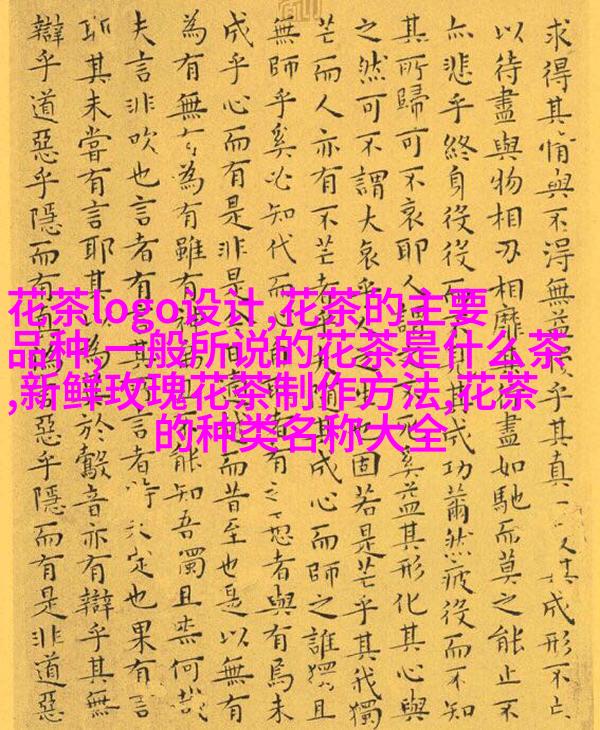 花茶logo设计,花茶的主要
品种,一般所说的花茶是什么茶
,新鲜玫瑰花茶制作方法,花茶
的种类名称大全
求得其情與不得無益乎其真一其成形不亡
以待盡與物相刃相靡其行盡如馳而莫之能止不
亦悲乎終身役役而不見其成功薾然疲役而不知
其所歸可不哀耶人謂之不死奚益其形化其心與
之然可不謂大哀乎人之生也固若是芒乎其我獨
芒而人亦有不芒者乎其成心而師之誰獨且
無師乎奚必知代而心者有之愚者與有焉未
成乎心而有是非是今而昔至也是以無有
為有無有為有雖有神不能知吾獨且柰何哉
夫言非吹也言者有言其言者特未定也果有言
耶其未嘗有言耶其以於鷇音亦有辯乎其無
辯乎道惡乎隱而有真惡乎隱而有是非道惡